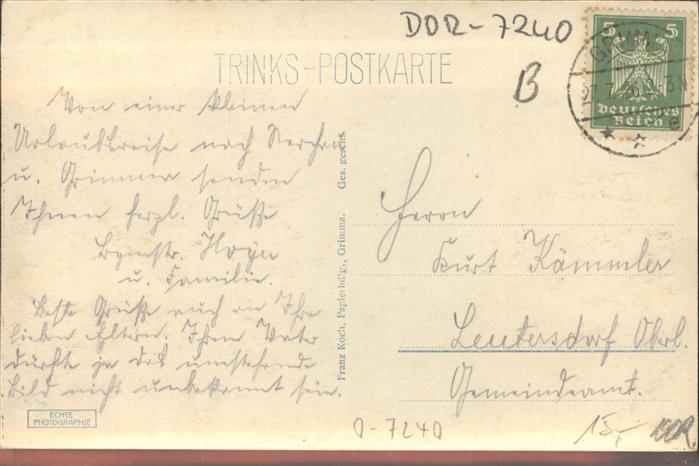 DDR-7240
B
TRINKS-POSTKARTE
5 5
Deutsches
Reich
Von einer kleinen
Urlaubsreise nach Nerchau
u. Grimma senden
Ihnen herzl. Grüße
u. Familie.
Beste Grüße auch an Ihre
lieben Eltern. Ihrem Vater
dürfte ja das umstehende
Bild nicht unbekannt sein.
ECHTE
PHOTOGRAPHIE
Franz Koch, Papierhdlg., Grimma. Ges. gesch.
Herrn
Kurt Kämmler
Leutersdorf Oberl.
Gemeindeamt.
D-7240
15,- DDR